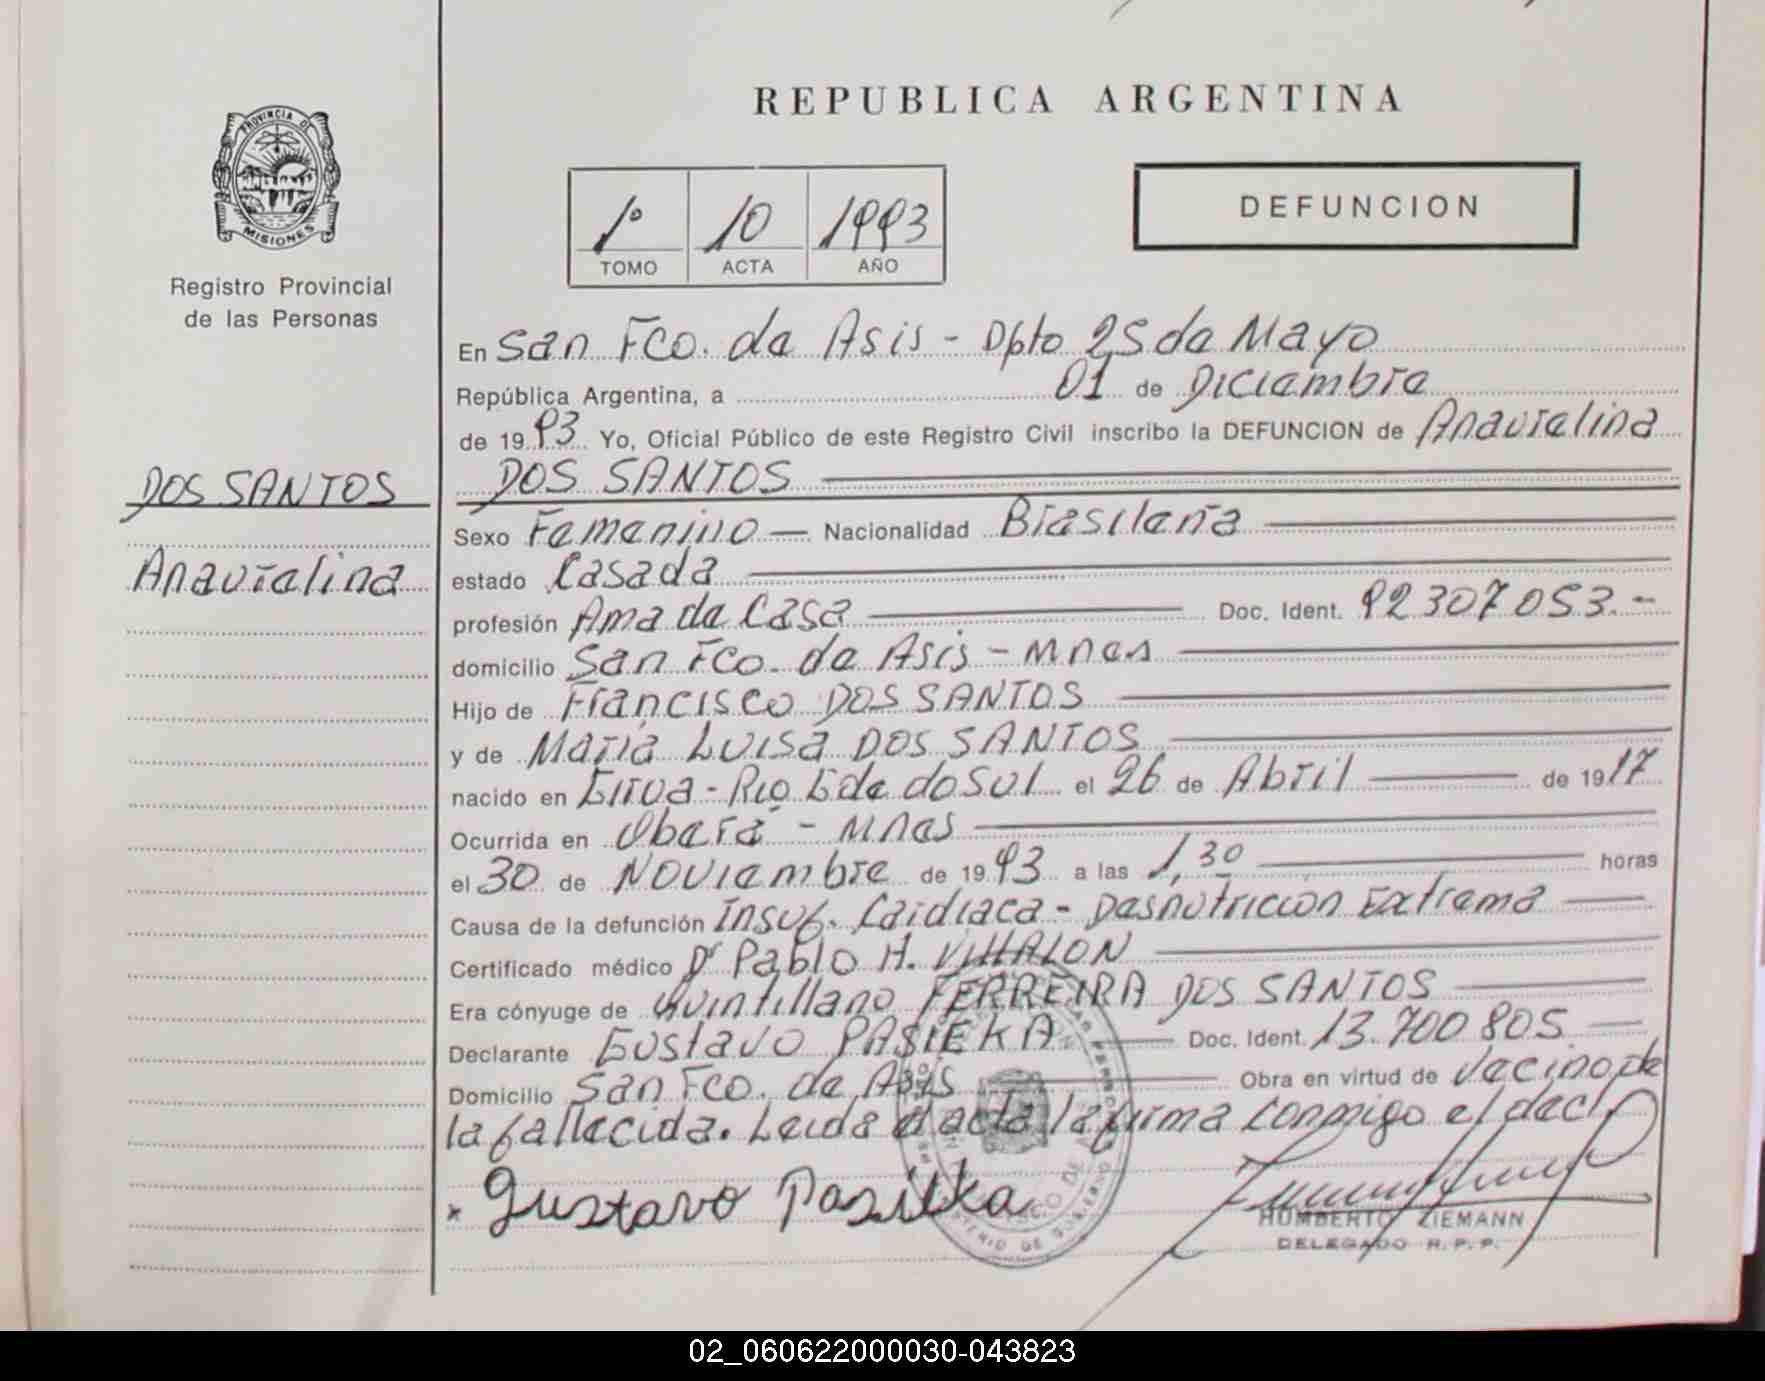 REPUBLICA ARGENTINA
PROVINCIA DE
MISIONES
Registro Provincial
de las Personas
1º 10 1993
TOMO ACTA AÑO
DEFUNCION
DOS SANTOS
Anaurelina
En San Fco. de Asis - Dpto 25 de Mayo
República Argentina, a 01 de Diciembre
de 1993 Yo, Oficial Público de este Registro Civil inscribo la DEFUNCION de Anaurelina
DOS SANTOS
Sexo Femenino — Nacionalidad Brasileña
estado Casada
profesión Ama de Casa Doc. Ident. 92307053.-
domicilio San Fco. de Asis - Mnes
Hijo de Francisco DOS SANTOS
y de Maria Luisa DOS SANTOS
nacido en - Rio Gde do Sul el 26 de Abril de 1917
Ocurrida en Oberá - Mnes
el 30 de Noviembre de 1993 a las 1,30 horas
Causa de la defunción Insuf. Cardiaca - Desnutricion Extrema
Certificado médico Dr Pablo H. VILLALON
Era cónyuge de Quintillano FERREIRA DOS SANTOS
Declarante Gustavo PASIEKA Doc. Ident. 13.700805
Domicilio San Fco. de Asis Obra en virtud de vecino de
la fallecida. Leida el acta la firma conmigo el decl.
x Gustavo Pasieka
HUMBERTO ZIEMANN
DELEGADO R.P.P.
02_060622000030-043823